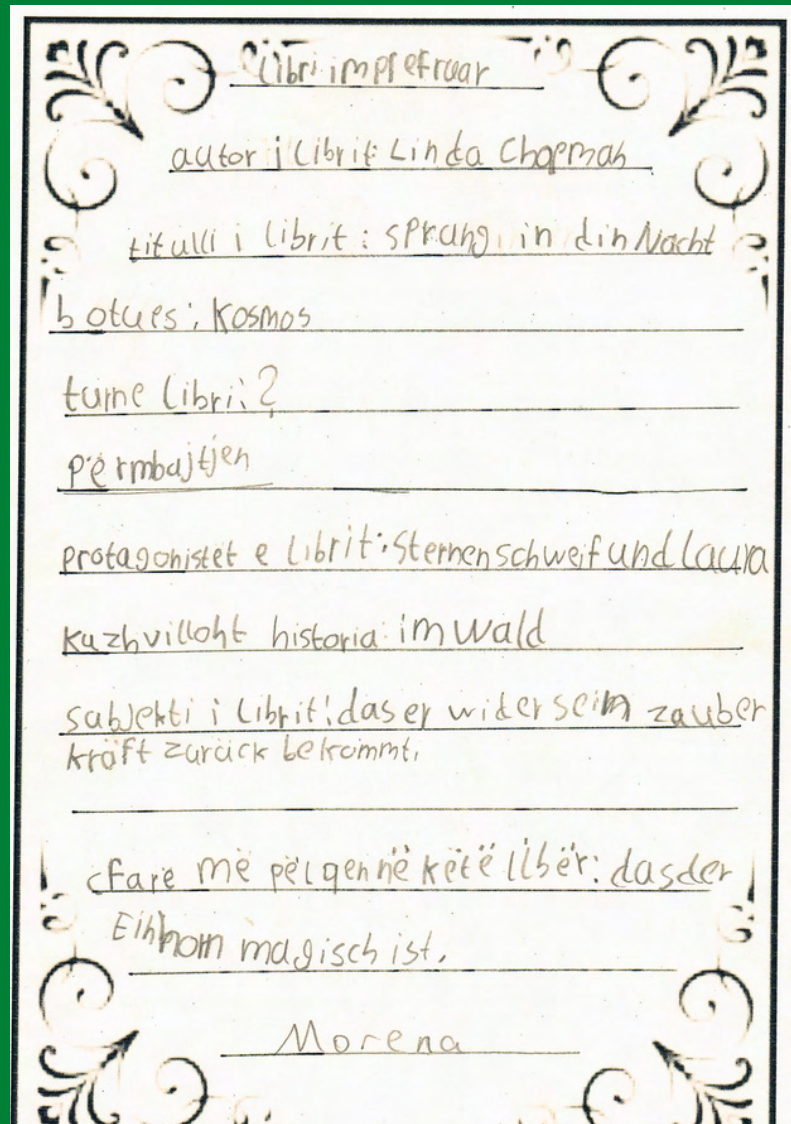 Libri im preferuar
autor i Librit: Linda Chapman
titulli i librit: sprung in din Nacht
botues: Kosmos
tume libri: ?
përmbajtjen
protagonistet e librit: Sternenschweif und Laura
kuzhvilloht historia: im wald
subjekti i librit: das er wider sein zauber
kraft zurück bekommt.
cfare më pëlqen në këtë libër: das der
Einhorn magisch ist.
Morena